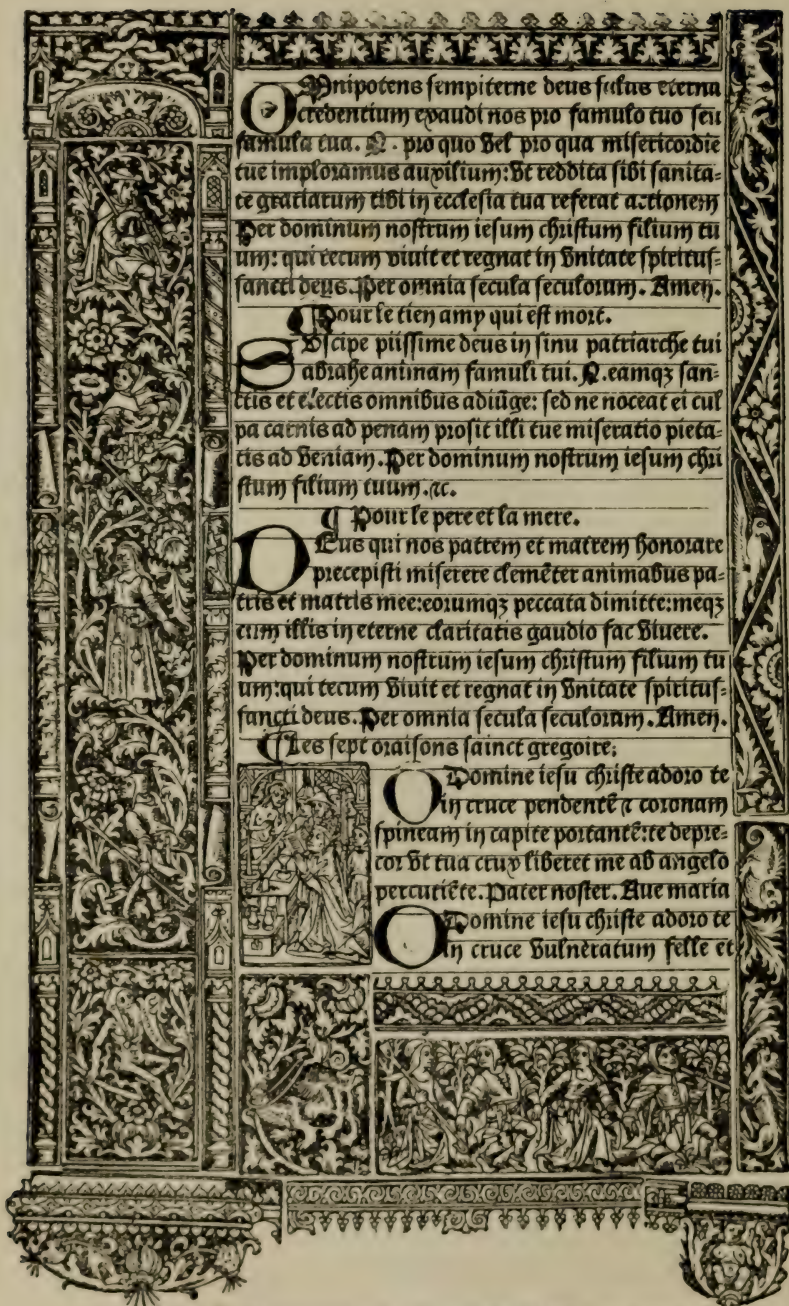 OMnipotens sempiterne deus salus eterna
credentium exaudi nos pro famulo tuo seu
famula tua. N. pro quo vel pro qua misericordie
tue imploramus auxilium: vt reddita sibi sanita-
te gratiarum tibi in ecclesia tua referat actionem
Per dominum nostrum iesum christum filium tu
um: qui tecum viuit et regnat in vnitate spiritus-
sancti deus. Per omnia secula seculorum. Amen.
¶ Pour le tien amy qui est mort.
SVscipe piissime deus in sinu patriarche tui
abrahe animam famuli tui. N. eamqꝫ san-
ctis et electis omnibus adiūge: sed ne noceat ei cul
pa carnis ad penam prosit illi tue miseratio pieta-
tis ad veniam. Per dominum nostrum iesum chri
stum filium tuum. ⁊c.
¶ Pour le pere et la mere.
DEus qui nos patrem et matrem honorare
precepisti miserere clemēter animabus pa-
tris et matris mee: eorumqꝫ peccata dimitte: meqꝫ
cum illis in eterne claritatis gaudio fac viuere.
Per dominum nostrum iesum christum filium tu
um: qui tecum viuit et regnat in vnitate spiritus-
sancti deus. Per omnia secula seculorum. Amen.
¶ Les sept oraisons sainct gregoire.
O Domine iesu christe adoro te
in cruce pendentē ⁊ coronam
spineam in capite portantē: te depre-
cor vt tua crux liberet me ab angelo
percutiēte. Pater noster. Aue maria
O Domine iesu christe adoro te
in cruce vulneratum felle et